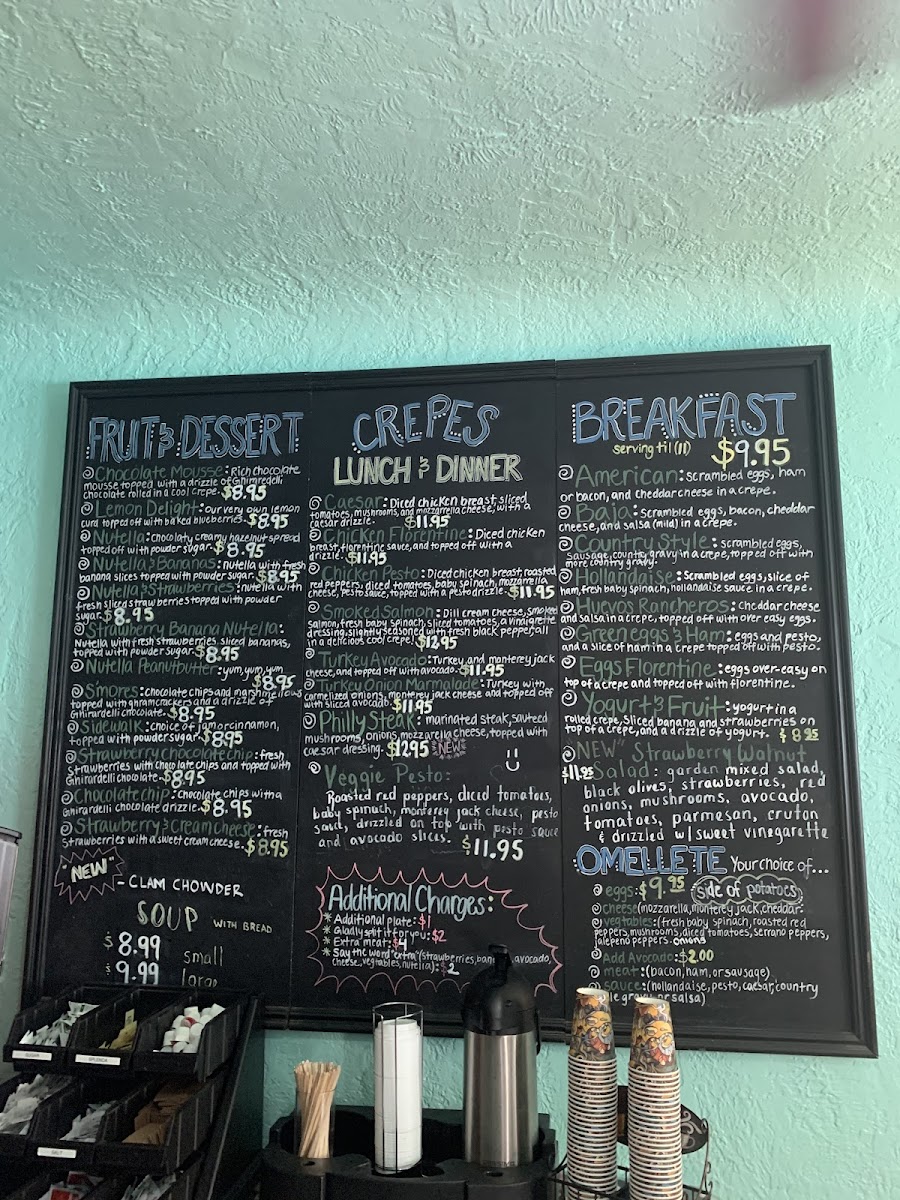 FRUIT & DESSERT
Chocolate Mousse: Rich chocolate
mousse topped with a drizzle of Ghirardelli
chocolate rolled in a cool crepe. $8.95
Lemon Delight: our very own lemon
curd topped off with baked blueberries. $8.95
Nutella: chocolaty creamy hazelnut spread
topped off with powder sugar. $8.95
Nutella & Bananas: nutella with fresh
banana slices topped with powder sugar. $8.95
Nutella & Strawberries: nutella with
fresh sliced strawberries topped with powder
sugar. $8.95
Strawberry Banana Nutella:
Nutella with fresh strawberries, sliced bananas,
topped with powder sugar. $8.95
Nutella Peanutbutter: yum, yum, yum
$8.95
S'mores: chocolate chips and marshmellows
topped with ghramcrackers and a drizzle of
Ghirardelli chocolate. $8.95
Sidewalk: choice of jam or cinnamon,
topped with powder sugar. $8.95
Strawberry chocolate chip: fresh
Strawberries with chocolate chips and topped with
Ghirardelli chocolate. $8.95
Chocolate chip: Chocolate chips with a
Ghirardelli chocolate drizzle. $8.95
Strawberry & Cream cheese: fresh
Strawberries with a sweet cream cheese. $8.95
"NEW"
- CLAM CHOWDER
SOUP WITH BREAD
$8.99 small
$9.99 large
CREPES
LUNCH & DINNER
Caesar: Diced chicken breast, sliced
tomatoes, mushrooms, and mozzarella cheese, with a
caesar drizzle. $11.95
Chicken Florentine: Diced chicken
breast, florentine sauce, and topped off with a
drizzle. $11.95
Chicken Pesto: Diced chicken breast, roasted
red peppers, diced tomatoes, baby spinach, mozzarella
cheese, pesto sauce, topped with a pesto drizzle. $11.95
Smoked Salmon: Dill cream cheese, smoked
salmon, fresh baby spinach, sliced tomatoes, a vinaigrette
dressing, slightly seasoned with fresh black pepper, all
in a delicious cool crepe. $12.95
Turkey Avocado: Turkey and monterey jack
cheese, and topped off with avocado. $11.95
Turkey Onion Marmalade: Turkey with
carmelized onions, monterey jack cheese and topped off
with sliced avocado. $11.95
Philly Steak: marinated steak, sauteed
mushrooms, onions, mozzarella cheese, topped with
caesar dressing. $12.95 NEW
Veggie Pesto:
Roasted red peppers, diced tomatoes,
baby spinach, monterey jack cheese, pesto
sauce, drizzled on top with pesto sauce
and avocado slices. $11.95
Additional Charges:
* Additional plate: $1
* Gladly split it for you: $2
* Extra meat: $4
* Say the word "extra" (strawberries, avocado,
cheese, vegetables, nutella): $2
BREAKFAST
serving til (11) $9.95
American: scrambled eggs, ham
or bacon, and cheddar cheese in a crepe.
Baja: Scrambled eggs, bacon, cheddar
cheese, and salsa (mild) in a crepe.
Country Style: scrambled eggs,
Sausage, country gravy in a crepe, topped off with
more country gravy.
Hollandaise: Scrambled eggs, slice of
ham, fresh baby spinach, hollandaise sauce in a crepe.
Huevos Rancheros: cheddar cheese
and salsa in a crepe, topped off with over easy eggs.
Green eggs & Ham: eggs and pesto,
and a slice of ham in a crepe topped off with pesto.
Eggs Florentine: eggs over-easy on
top of a crepe and topped off with florentine.
Yogurt & Fruit: yogurt in a
rolled crepe, sliced banana and strawberries on
top of a crepe, and a drizzle of yogurt. $8.95
"NEW" Strawberry Walnut
$11.95 Salad: garden mixed salad,
black olives, strawberries, red
onions, mushrooms, avocado,
tomatoes, parmesan, cruton
& drizzled w/ sweet vinegarette
OMELLETE Your choice of...
eggs: $9.95 side of potatoes
cheese (mozzarella, monterey jack, cheddar
vegtables: (fresh baby spinach, roasted red
peppers, mushrooms, diced tomatoes, serrano peppers,
jalepeno peppers. onions
Add Avocado: $2.00
meat: (bacon, ham, or sausage)
sauce: (hollandaise, pesto, caesar, country
gravy or salsa)
SUGAR
SPLENDA
SALT